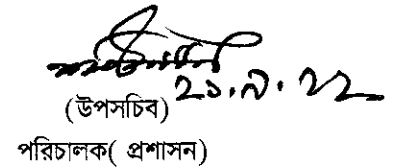 ২১.৯.২২
(উপসচিব)
পরিচালক( প্রশাসন)